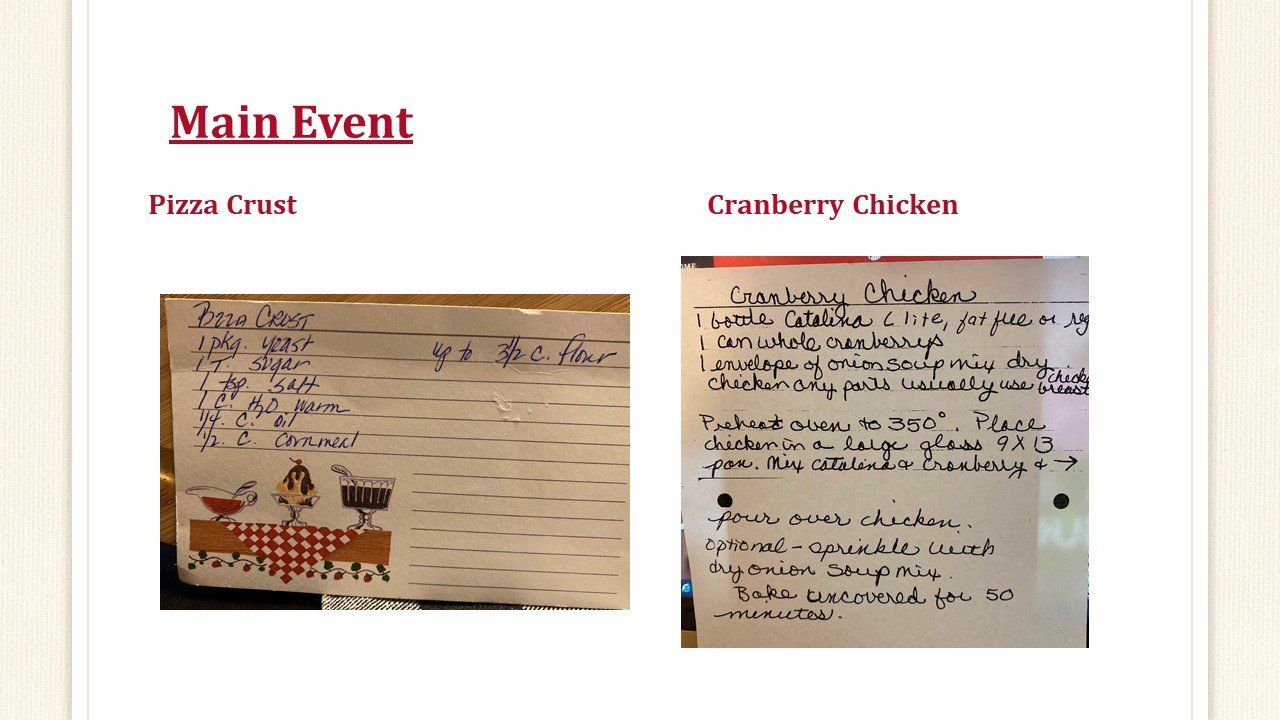 Main Event
Pizza Crust
Pizza Crust
1 pkg. yeast
1 T. sugar
1 tsp. salt
1 C. H2O warm
1/4 C. oil
1/2 C. Cornmeal
up to 3 1/2 C. flour
Cranberry Chicken
Cranberry Chicken
1 bottle Catalina lite, fat free or reg
1 can whole cranberrys
1 envelope of onion soup mix dry
chicken any parts usually use
breast
Preheat oven to 350°. Place
chicken in a large glass 9X13
pan. Mix Catalina & cranberry & →
pour over chicken.
optional - sprinkle with
dry onion soup mix.
Bake uncovered for 50
minutes.